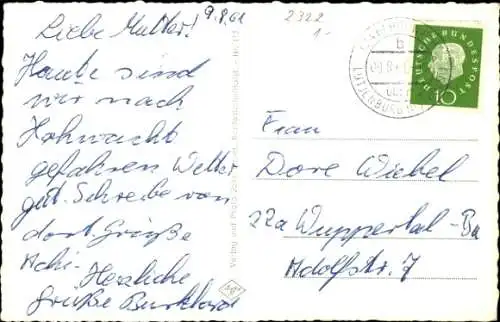 9.8.61
2322
1-
Liebe Mutter!
Heute sind
wir nach
Hohwacht
gefahren Wetter
gut. Schreibe von
dort. Grüße
Achi-
Herzliche
Grüße Burkhard
Verlag und
b
LÜTJENBURG
DEUTSCHE BUNDESPOST
10
Frau
Dore Wiebel
22a Wuppertal-Ba
Adolfstr. 7